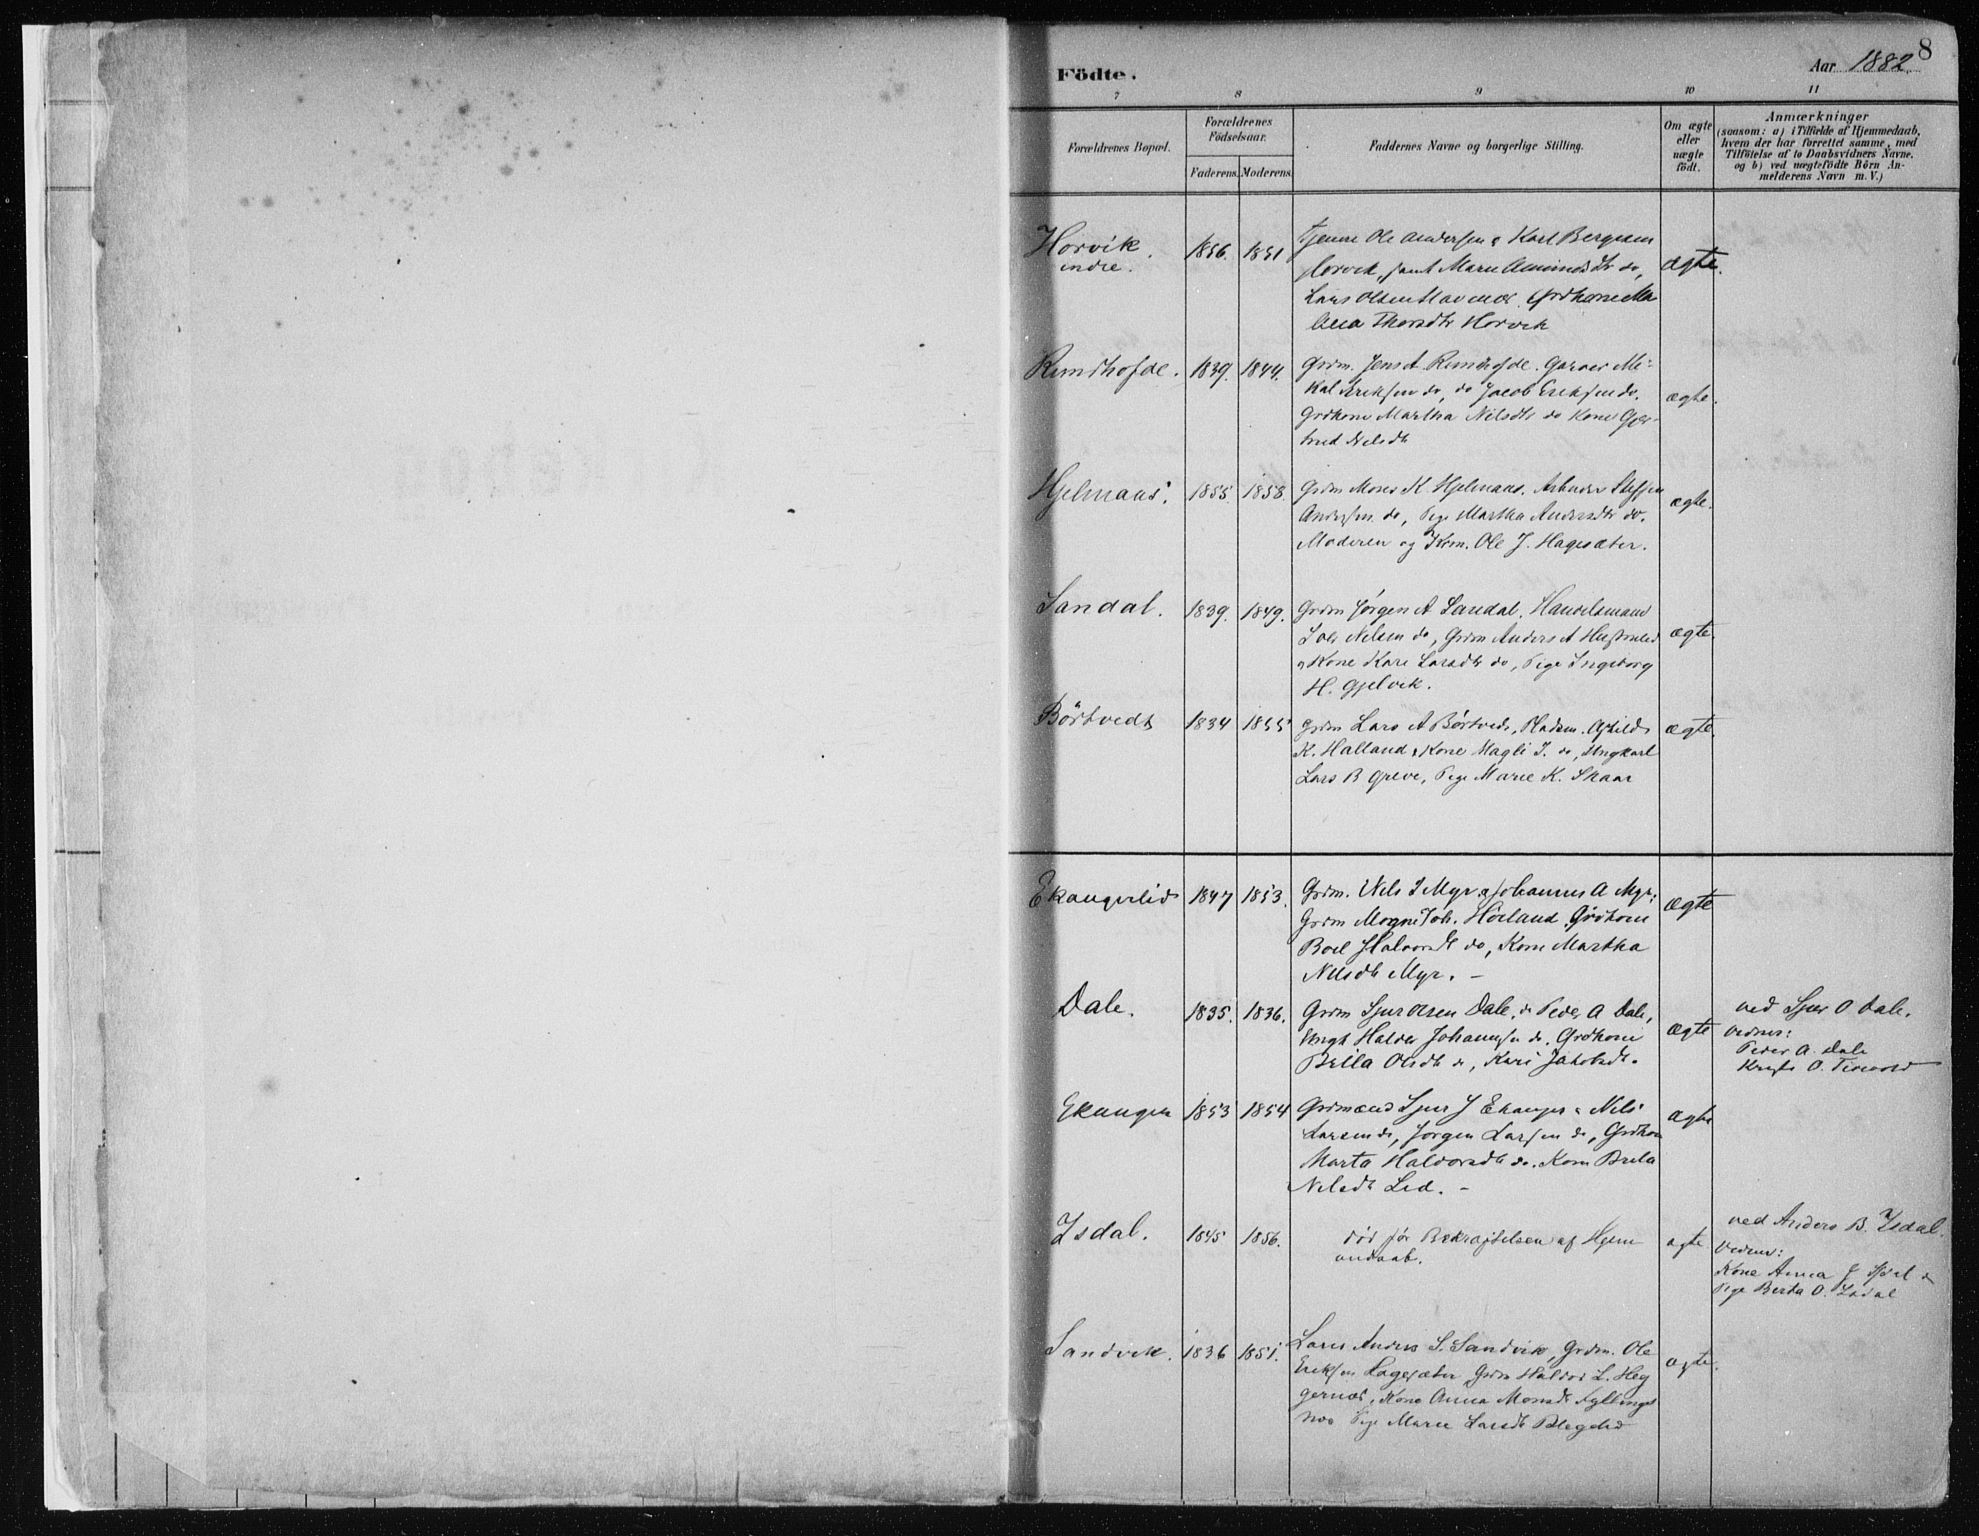 8
Födte.
Aar 1882
7 8 9 10 11
Forældrenes Bopæl.
Forældrenes Födselsaar.
Faderens. Moderens.
Faddernes Navne og borgerlige Stilling.
Om ægte eller uægte födt.
Anmærkninger
(saasom: a) i Tilfælde af Hjemmedaab,
hvem der har forrettet samme, med
Tilföielse af to Daabsvidners Navne,
og b) ved uægtefödte Börn An-
melderens Navn m. V.)
Horvik indre. 1856. 1851 Tjener Ole Andersen & Karl Bergesen ægte.
Horvik, samt Marie Amunds Dr do,
Lars Olsen Grdkone Ma
Thorsdtr Horvik
Rundhofde. 1839. 1844. Grdm. Jens A Rundhofde. Garver Mi- ægte.
kal Eriksen do, do Jacob Eriksen do.
Grdkone Martha Nilsdtr do Kone Gjer-
trud Nilsdtr
Hjelmaas. 1855 1858. Grdm Mons K Hjelmaas. Arbeider Steffen ægte.
Andersen do, Pige Martha Andersdtr do.
Moderen og Grdm. Ole J. Hagesæter.
Sandal. 1839. 1849. Grdm Jørgen A Sandal. Handelsmand ægte.
Iver Nilsen do, Grdm Anders A
& Kone Kari Larsdtr do, Pige Ingeborg
H. Gjelvik.
Börtvedt 1834 1855 Grdm Lars A Börtvedt, Pladsm. ægte.
K. Halland & Kone Magli J. do, Ungkarl
Lars B Greve, Pige Marie K. Skaar
Ekangerlid 1847 1853. Grdm. Nils I Myr & Johannes A Myr; ægte
Grdm Mogne Joh. Hörland Grdkone
Boel Halvorsdt do, Kone Martha
Nilsdtr Myr. -
Dale. 1835. 1836. Grdm Sjur Olsen Dale, do Peder A Dale, ægte
Ungk Haldor Johannsen do. Grdkone
Brita Olsdtr do, Kari Jakobsdt.
ved Sjur O Dale.
Vidner:
Peder A. Dale
O.
Ekanger 1853 1854 Grdmand Sjur J Ekanger & Nils ægte
Larsen do, Jörgen Larsen do, Grdkone
Marta Haldorsdtr do. Kone Brita
Nilsdtr Lid. -
Isdal. 1845 1856. död för Bekræftelsen af Hjem ægte
medaab.
ved Anders B. Isdal.
Vidner:
Kone Anna J Isdal &
Pige Berta O. Isdal
Sandvik. 1836 1851. Anders S. Sandvik, Grdm. Ole ægte.
Eriksen Hagesæter Grdm Haldor L. Heg
gernæs, Kone Anna Monsdtr Fyllings
næs Pige Marie Larsdtr